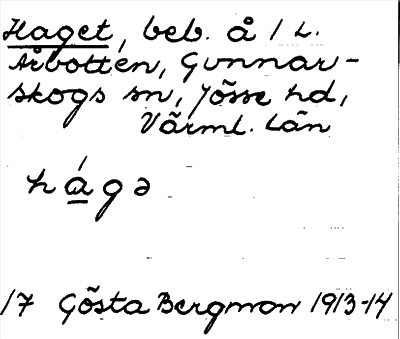 Haget, beb. å 1 L.
Årbotten, Gunnar-
skogs sn, Jösse hd,
Värml. län
hágə
17 Gösta Bergman 1913-14